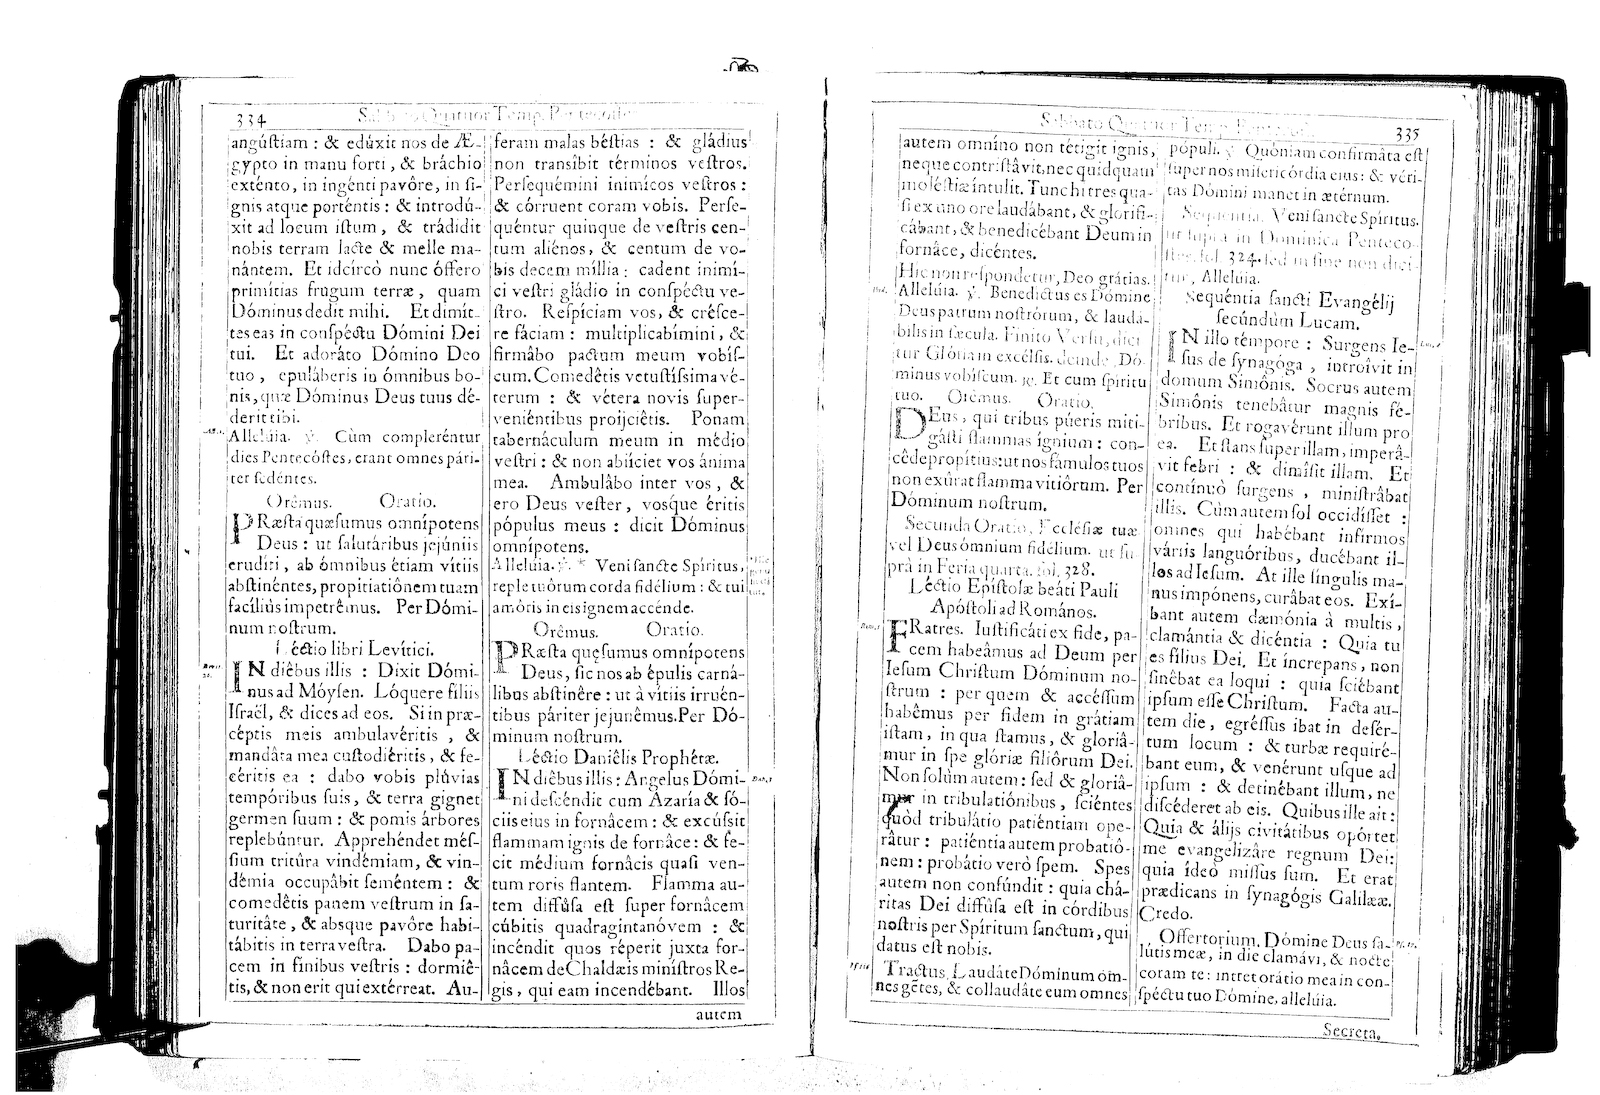 334
Sabbato Quatuor Temp. Pentecostes
angúſtiam : & edúxit nos de Æ-
gypto in manu forti, & bráchio
exténto, in ingénti pavôre, in ſi-
gnis atque porténtis : & introdú-
xit ad locum iſtum, & trádidit
nobis terram lacte & melle ma-
nántem. Et idcircò nunc óffero
primítias frugum terræ, quam
Dóminus dedit mihi. Et dimít-
tes eas in conſpéctu Dómini Dei
tui. Et adoráto Dómino Deo
tuo, epuláberis in ómnibus bo-
nis, quæ Dóminus Deus tuus dé-
derit tibi.
Alleluia. ℣. Cùm compleréntur
dies Pentecóſtes, erant omnes pári-
ter ſedéntes.
Orêmus. Oratio.
PRæſta quæſumus omnípotens
Deus : ut ſalutáribus jejúniis
erudíti, ab ómnibus étiam vítiis
abſtinéntes, propitiatiônem tuam
facílius impetrêmus. Per Dómi-
num noſtrum.
Léctio libri Levítici.
IN diêbus illis : Dixit Dómi-
nus ad Móyſen. Lóquere fíliis
Iſraël, & dices ad eos. Si in præ-
céptis meis ambulavéritis, &
mandáta mea cuſtodiéritis, & fe-
céritis ea : dabo vobis plúvias
tempóribus ſuis, & terra gignet
germen ſuum : & pomis árbores
replebúntur. Apprehéndet méſ-
ſium tritúra vindémiam, & vin-
démia occupábit ſeméntem : &
comedêtis panem veſtrum in ſa-
turitâte, & absque pavôre habi-
tábitis in terra veſtra. Dabo pa-
cem in fínibus veſtris : dormiê-
tis, & non erit qui extérreat. Au-
feram malas béſtias : & gládius
non tranſíbit términos veſtros.
Perſequémini inimícos veſtros :
& córruent coram vobis. Perſe-
quéntur quinque de veſtris cen-
tum aliénos, & centum de vo-
bis decem míllia : cadent inimí-
ci veſtri gládio in conſpéctu ve-
ſtro. Reſpíciam vos, & créſce-
re fáciam : multiplicabímini, &
firmâbo pactum meum vobíſ-
cum. Comedêtis vetuſtíſsima vé-
terum : & vétera novis ſuper-
veniéntibus proijciêtis. Ponam
tabernáculum meum in médio
veſtri : & non abíiciet vos ánima
mea. Ambulâbo inter vos, &
ero Deus veſter, vosque éritis
pópulus meus : dicit Dóminus
omnípotens.
Alleluia. ℣. * Veni ſancte Spíritus,
reple tuórum corda fidélium : & tui
amóris in eis ignem accénde.
Orêmus. Oratio.
PRæſta quęſumus omnípotens
Deus, ſic nos ab épulis carná-
libus abſtinêre : ut à vítiis irruén-
tibus páriter jejunêmus. Per Dó-
minum noſtrum.
Léctio Daniêlis Prophétæ.
IN diêbus illis : Angelus Dómi-
ni deſcéndit cum Azaría & ſó-
ciis eius in fornâcem : & excúſsit
flammam ignis de fornâce : & fe-
cit médium fornâcis quaſi ven-
tum roris flantem. Flamma au-
tem diffûſa eſt ſuper fornâcem
cúbitis quadragintanóvem : &
incéndit quos réperit juxta for-
nâcem de Chaldæis miniſtros Re-
gis, qui eam incendébant. Illos
autem
Sabbato Quatuor Temp. Pentecoſt.
335
autem omníno non tétigit ignis,
neque contriſtâvit, nec quidquam
moléſtiæ íntulit. Tunc hi tres qua-
ſi ex uno ore laudábant, & glorifi-
cábant, & benedicébant Deum in
fornâce, dicéntes.
Hic non reſpondetur, Deo grátias.
Alleluia. ℣. Benedíctus es Dómine
Deus patrum noſtrórum, & laudá-
bilis in ſæcula. Finito Verſu, dici
tur Glória in excélſis. deinde Dó-
minus vobíſcum. ℟. Et cum ſpíritu
tuo. Orêmus. Oratio.
DEus, qui tribus púeris miti-
gáſti flammas ígnium : con-
cêde propítius : ut nos fámulos tuos
non exûrat flamma vitiôrum. Per
Dóminum noſtrum.
Secunda Oratio, Eccléſiæ tuæ
vel Deus ómnium fidélium. ut ſu-
prà in Feria quarta. fol. 328.
Léctio Epíſtolæ beáti Pauli
Apóſtoli ad Romános.
FRatres. Iuſtificáti ex fide, pa-
cem habeâmus ad Deum per
Ieſum Chriſtum Dóminum no-
ſtrum : per quem & accéſſum
habêmus per fidem in grátiam
iſtam, in qua ſtamus, & gloriâ-
mur in ſpe glóriæ filiôrum Dei.
Non ſolùm autem : ſed & gloriâ-
mur in tribulatiónibus, ſciéntes
quòd tribulátio patiéntiam ope-
râtur : patiéntia autem probatió-
nem : probátio verò ſpem. Spes
autem non confúndit : quia chá-
ritas Dei diffûſa eſt in córdibus
noſtris per Spíritum ſanctum, qui
datus eſt nobis.
Tractus, Laudáte Dóminum om-
nes gẽtes, & collaudâte eum omnes
pópuli. ℣. Quóniam confirmâta eſt
ſuper nos miſericórdia eius : & véri-
tas Dómini manet in ætérnum.
Sequentia. Veni ſancte Spíritus.
ut ſupra in Dominica Penteco
ſtes. fol. 324. ſed in fine non dici-
tur, Alleluia.
Sequéntia ſancti Evangélij
ſecúndùm Lucam.
IN illo témpore : Surgens Ie-
ſus de ſynagóga, introívit in
domum Simônis. Socrus autem
Simônis tenebâtur magnis fé-
bribus. Et rogavérunt illum pro
ea. Et ſtans ſuper illam, imperâ-
vit febri : & dimíſit illam. Et
contínuò ſurgens, miniſtrâbat
illis. Cùm autem ſol occidíſſet :
omnes qui habébant infirmos
váriis languóribus, ducébant il-
los ad Ieſum. At ille ſíngulis ma-
nus impónens, curâbat eos. Exí-
bant autem dæmónia à multis,
clamántia & dicéntia : Quia tu
es filius Dei. Et íncrepans, non
ſinébat ea loqui : quia ſciébant
ipſum eſſe Chriſtum. Facta au-
tem die, egréſſus ibat in deſér-
tum locum : & turbæ requiré-
bant eum, & venérunt uſque ad
ipſum : & detinébant illum, ne
diſcéderet ab eis. Quibus ille ait :
Quia & álijs civitátibus opórtet
me evangelizâre regnum Dei:
quia ídeò miſſus ſum. Et erat
prædicans in ſynagógis Galilææ.
Credo.
Offertorium. Dómine Deus ſa-
lútis meæ, in die clamávi, & nocte
coram te : intret orátio mea in con-
ſpéctu tuo Dómine, alleluia.
Secreta.